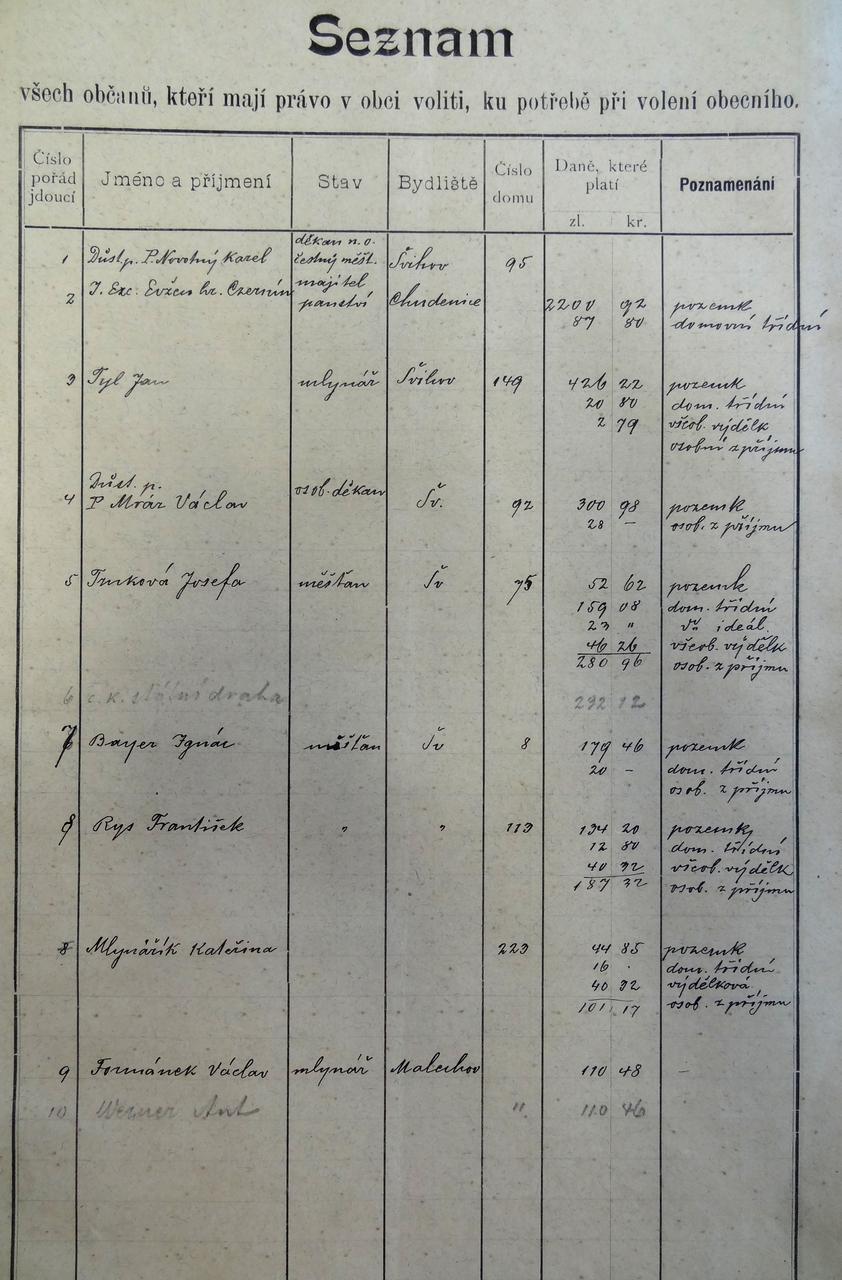 Seznam
všech občanů, kteří mají právo v obci voliti, ku potřebě při volení obecního.
Číslo pořád jdoucí Jméno a příjmení Stav Bydliště Číslo domu Daně, které platí Poznamenání
zl. kr.
děkan n. o.
1 Důst. p. P. Novotný Karel čestný měšt. Švihov 95
J. Exc. Evžen hr. Czernín majitel
2 panství Chudenice 2200 92 pozemk
87 80 domovní třídní
3 Tyl Jan mlynář Švihov 149 426 22 pozemk
20 80 dom. třídní
2 79 všeob. výdělk
osobní z příjmu
Důst. p.
4 P Mráz Václav osob. děkan Šv. 92 300 98 pozemk
28 — osob. z příjmu
5 Josefa měšťan Šv 75 52 62 pozemk
159 08 dom. třídní
23 " ideál.
46 26 všeob. výdělk
280 96 osob. z příjmu
6 c. k. státní draha 292 12
7 Bayer Ignác měšťan Šv 8 179 46 pozemk
20 — dom. třídní
osob. z příjmu
8 Rys František " " 113 134 20 pozemk
12 80 dom. třídní
40 32 všeob. výdělk
187 32 osob. z příjmu
8 Mlynářík Kateřina 223 44 85 pozemk
16 . dom. třídní
40 32 výdělková
101 17 osob. z příjmu
9 Formánek Václav mlynář Malechov 110 48 —
10 Werner Ant " 110 46